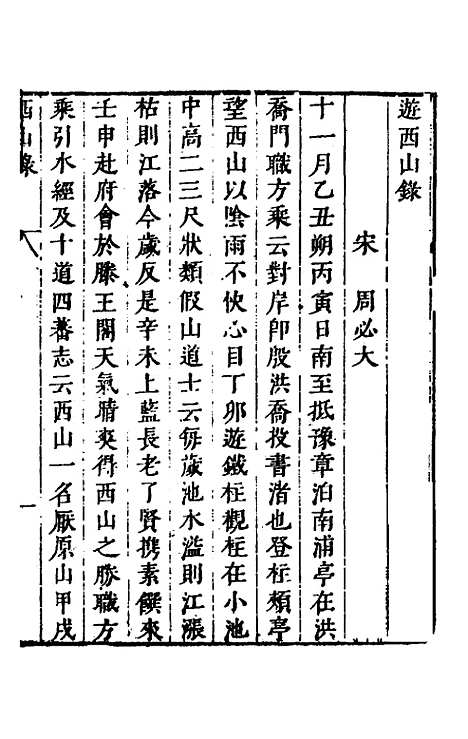 遊西山錄
宋　周必大
十一月乙丑朔丙寅日南至抵豫章泊南浦亭在洪
喬門職方乘云對岸卽殷洪喬投書渚也登柱頰亭
望西山以陰雨不快心目丁卯遊鐵柱觀柱在小池
中高二三尺狀類假山道士云每歲池水溢則江漲
枯則江落今歲反是辛未上藍長老了賢携素饌來
壬申赴府會於滕王閣天氣晴爽得西山之勝職方
乘引水經及十道四蕃志云西山一名厭原山甲戌
西山錄
一